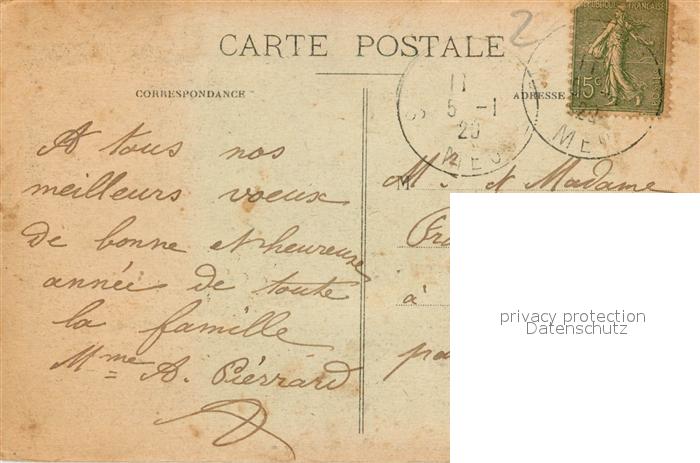 2
CARTE POSTALE
RÉPUBLIQUE FRANÇAISE
15c
CORRESPONDANCE
ADRESSE
11
5 -1
20
A tous nos
meilleurs voeux
de bonne et heureuse
année de toute
la famille
Mme A. Piérrard
M
Mr et Madame
à
privacy protection
Datenschutz